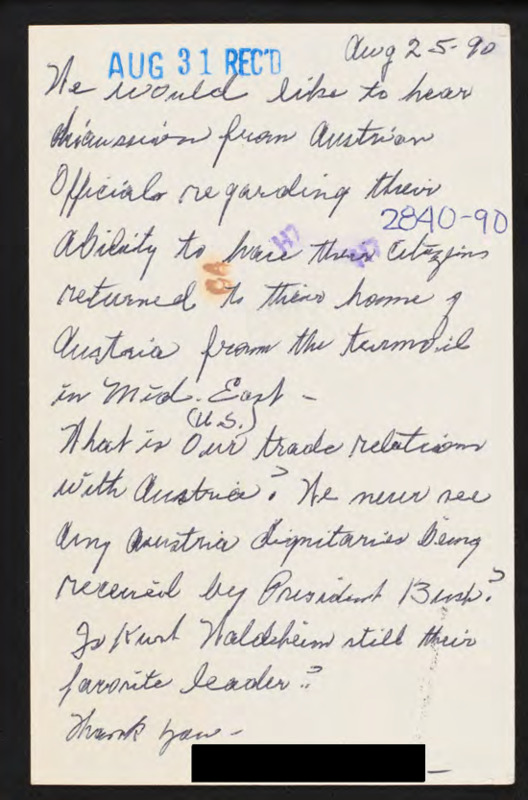 Aug 25-90
AUG 31 REC'D
We would like to hear
discussion from Austrian
Officials regarding their
2840-90
Ability to have their Citizens
returned to their home of
Austria from the turmoil
in Mid. East -
(U.S.)
What is Our trade relations
with Austria? We never see
Any Austria dignitaries being
received by President Bush?
Is Kurt Waldsheim still their
favorite leader?
Thank you -